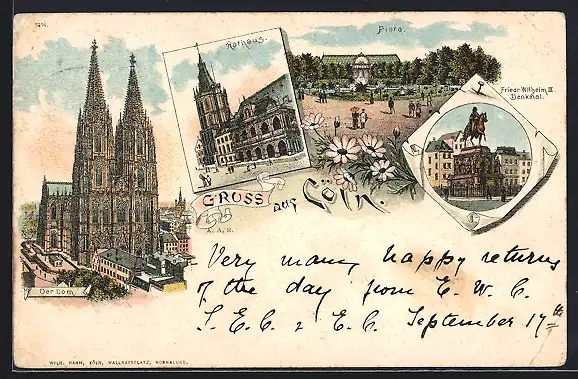 5414.
Rathaus.
Flora.
Friedr. Wilhelm III
Denkmal.
GRUSS
aus Cöln.
A. A. K.
Der Dom.
Very many happy returns
of the day from E. W. C.
S. E. C. & E. C. September 17th
WILH. HAHN, KÖLN, WALLRAFSPLATZ,